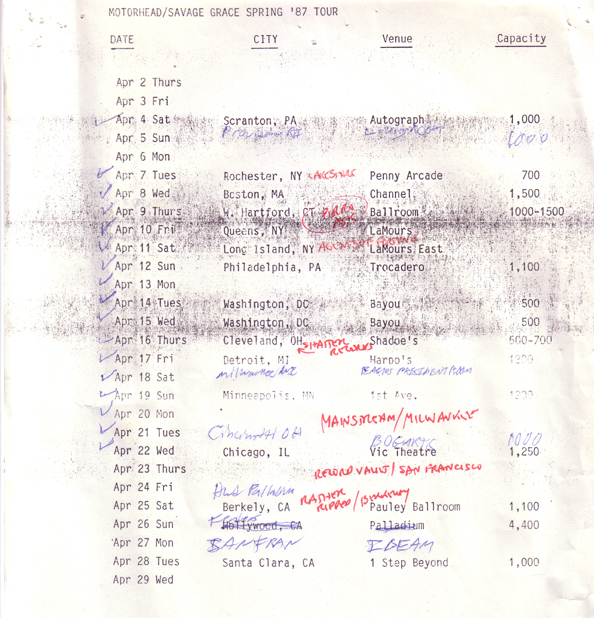 MOTORHEAD/SAVAGE GRACE SPRING '87 TOUR
DATE CITY Venue Capacity
Apr 2 Thurs
Apr 3 Fri
Apr 4 Sat Scranton, PA Autograph 1,000
Apr 5 Sun Providence RI 1000
Apr 6 Mon
Apr 7 Tues Rochester, NY Penny Arcade 700
Apr 8 Wed Boston, MA Channel 1,500
Apr 9 Thurs W. Hartford, CT Ballroom 1000-1500
Apr 10 Fri Queens, NY LaMours
Apr 11 Sat Long Island, NY LaMours East
Apr 12 Sun Philadelphia, PA Trocadero 1,100
Apr 13 Mon
Apr 14 Tues Washington, DC Bayou 500
Apr 15 Wed Washington, DC Bayou 500
Apr 16 Thurs Cleveland, OH Shadoe's 600-700
SHATTER RECORDS
Apr 17 Fri Detroit, MI Harpo's 1200
Apr 18 Sat Milwaukee
Apr 19 Sun Minneapolis, MN 1st Ave. 1200
Apr 20 Mon
MAINSTREAM/MILWAUKEE
Apr 21 Tues Cincinatti OH BOGARTS 1000
Apr 22 Wed Chicago, IL Vic Theatre 1,250
Apr 23 Thurs RECORD VAULT/SAN FRANCISCO
Apr 24 Fri
RATHER RIPPED/BERKELEY
Apr 25 Sat Berkely, CA Pauley Ballroom 1,100
Apr 26 Sun Hollywood, CA Palladium 4,400
Apr 27 Mon SAN FRAN IBEAM
Apr 28 Tues Santa Clara, CA 1 Step Beyond 1,000
Apr 29 Wed